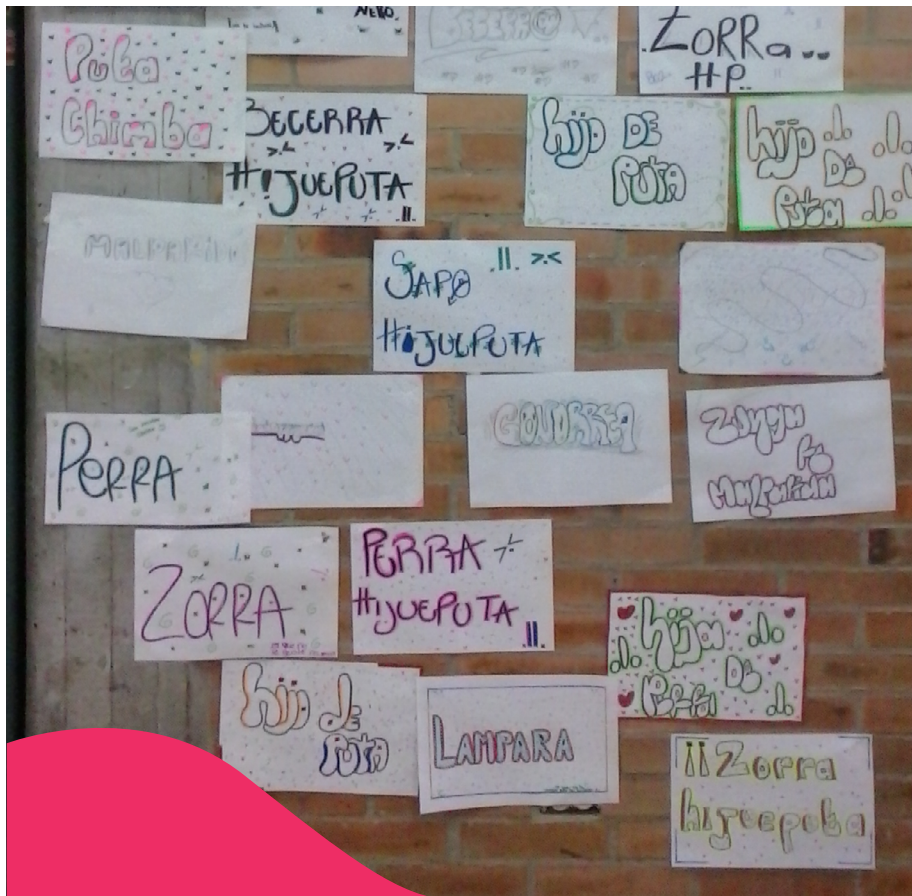 Puta
Chimba
ZORRa
HP..
BECERRA
>.<
>.<
HIJUEPUTA
.II.
hijo DE
PUTA
hijo
De
Puta
MALPARID
SAPO
.II. >.<
HiJUEPUTA
PERRA
GONORREA
ZORRA
PERRA
HiJUEPUTA
.II.
hija
De
Perra
hijo de
PUTA
LAMPARA
¡¡Zorra
hijueputa